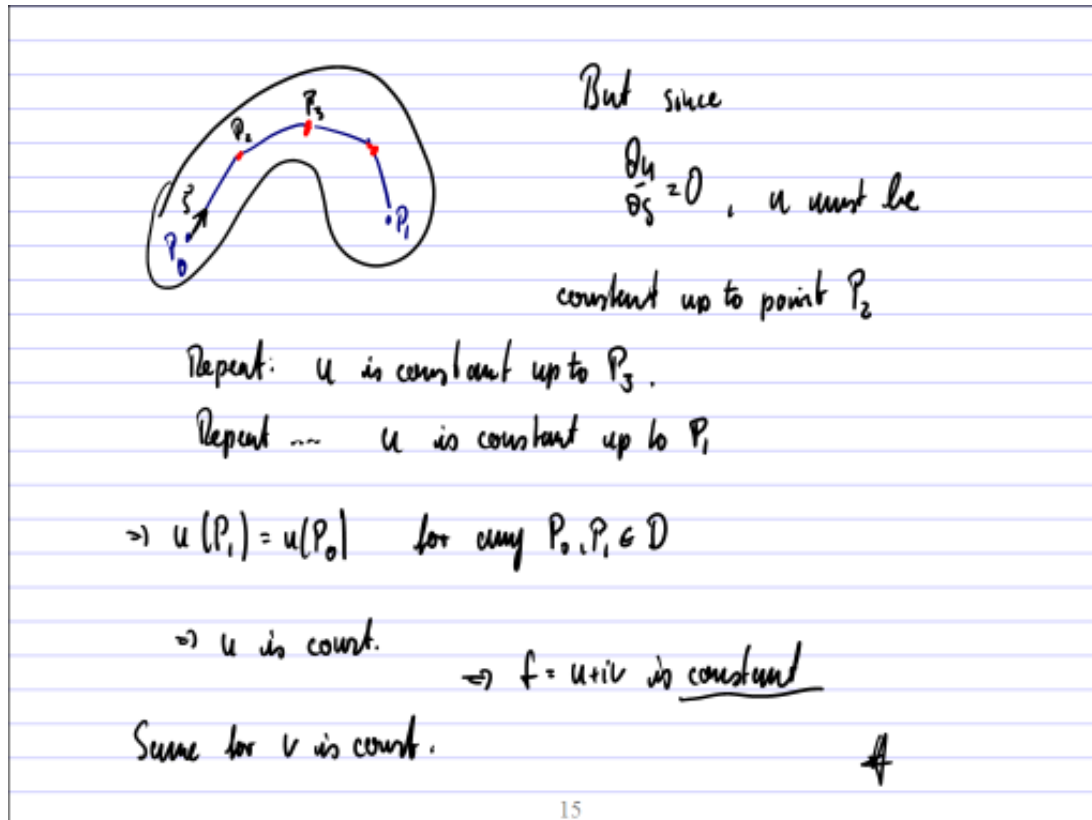 P₂
P₃
ξ
P₀
P₁
But since
∂u/∂ξ = 0, u must be
constant up to point P₂
Repeat: u is constant up to P₃.
Repeat .... u is constant up to P₁
⇒ u(P₁) = u(P₀) for any P₀, P₁ ∈ D
⇒ u is const.
⇒ f = u+iv is constant
Same for v is const.
15